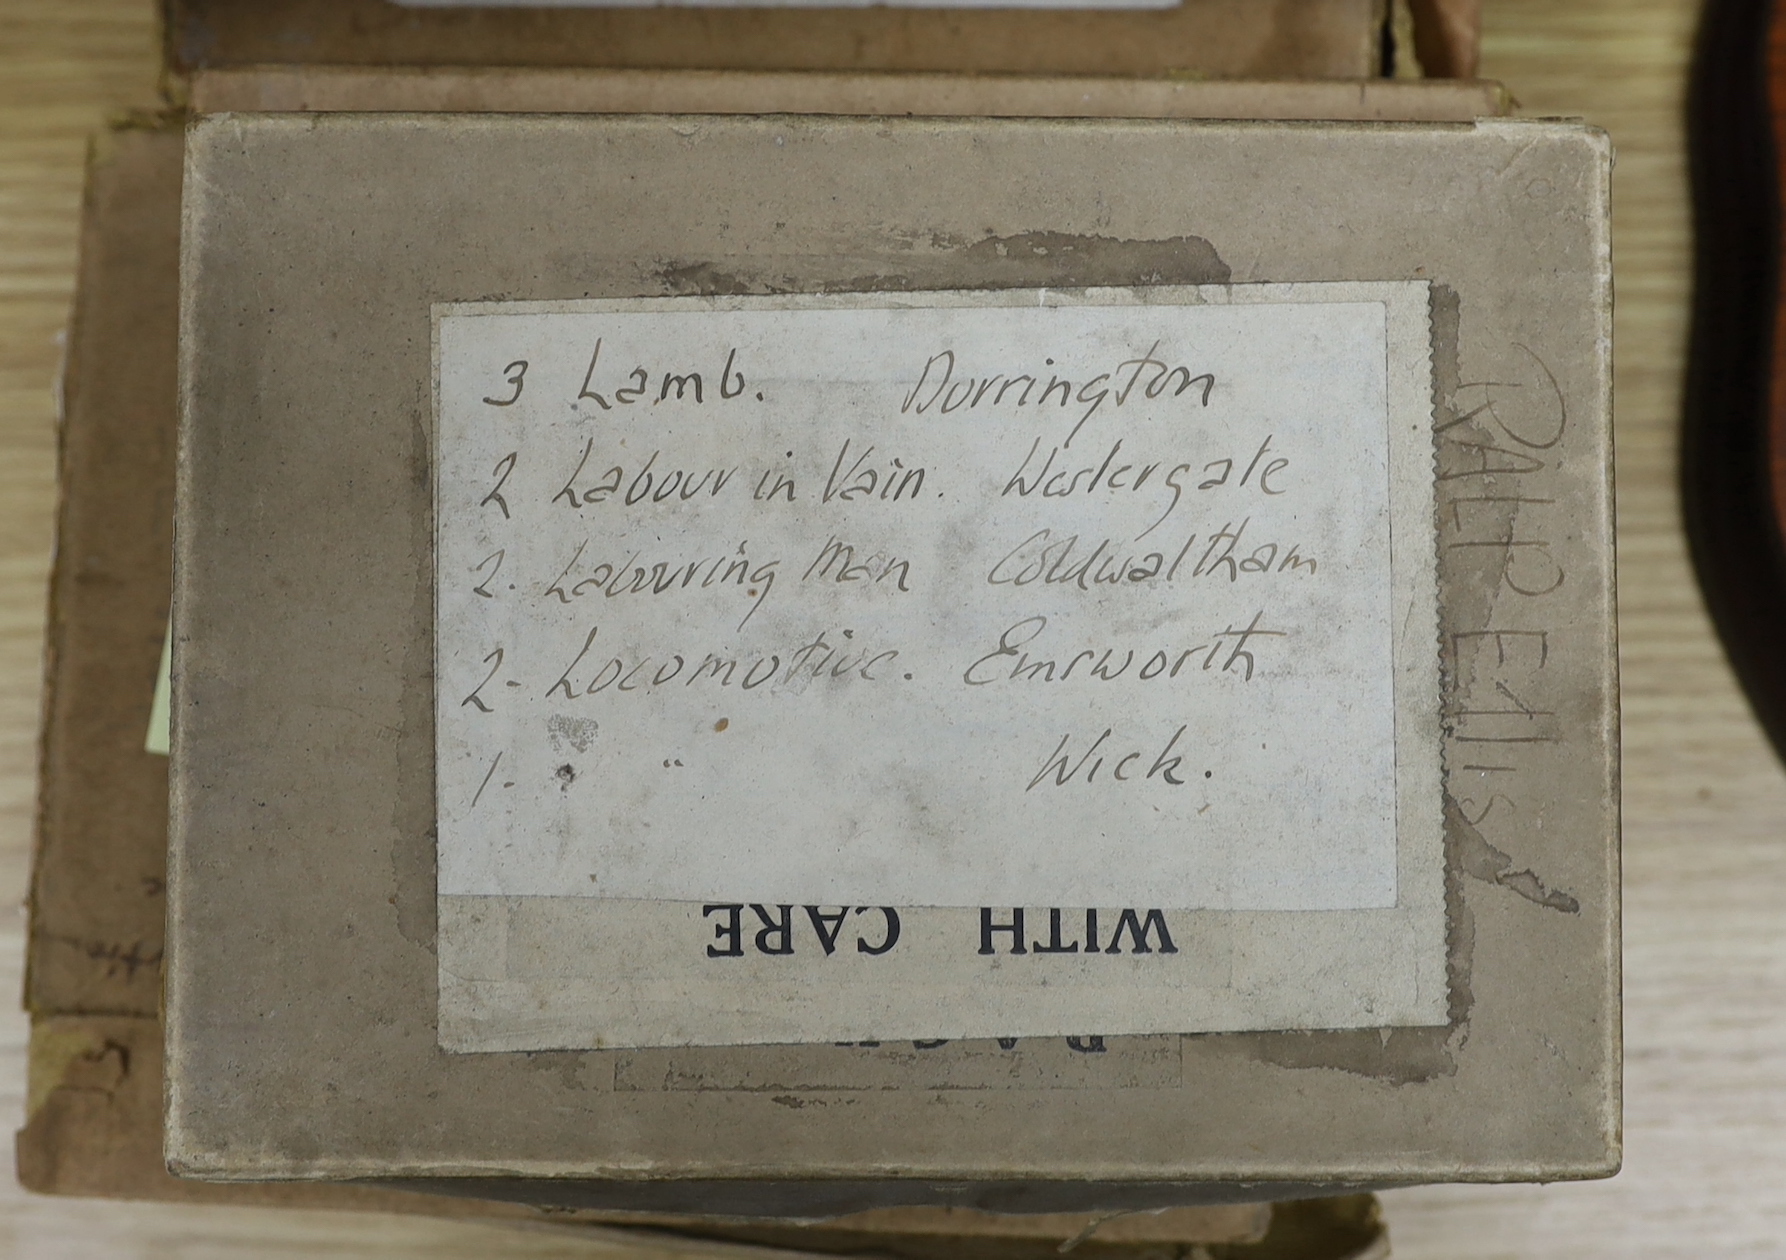 3 Lamb. Durrington
2 Labour in Vain. Westergate
2. Labouring Man Coldwaltham
2- Locomotive. Emsworth
1- " " Wick.
WITH CARE
RALPH Ellis